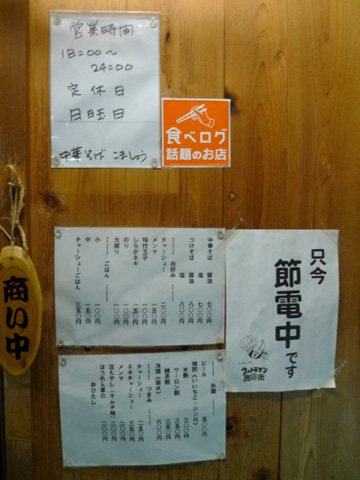 営業時間
18:00〜
24:00
定休日
日曜日
中華そば こましょう
食べログ
話題のお店
商い中
中華そば 醤油 七〇〇
塩 七〇〇
つけそば 醤油 八〇〇
塩 八〇〇
お好み
チャーシュー 二〇〇
メンマ 一五〇
味付玉子 一〇〇
しらがネギ 一〇〇
のり 一〇〇
大盛り 一〇〇
ごはん
小 一〇〇
中 一五〇
チャーシューごはん 三五〇
只今
節電中です
ウルトラマン
商店街
お酒
ビール 五〇〇
焼酎(いいちこ・ジンロ)
水割 三〇〇
ウーロン割 三五〇
緑茶割 三五〇
つまみ
チャーシュー 三五〇
ネギチャーシュー
メンマ
豆もやし(キムチ味)
ほうれん草の
おひたし